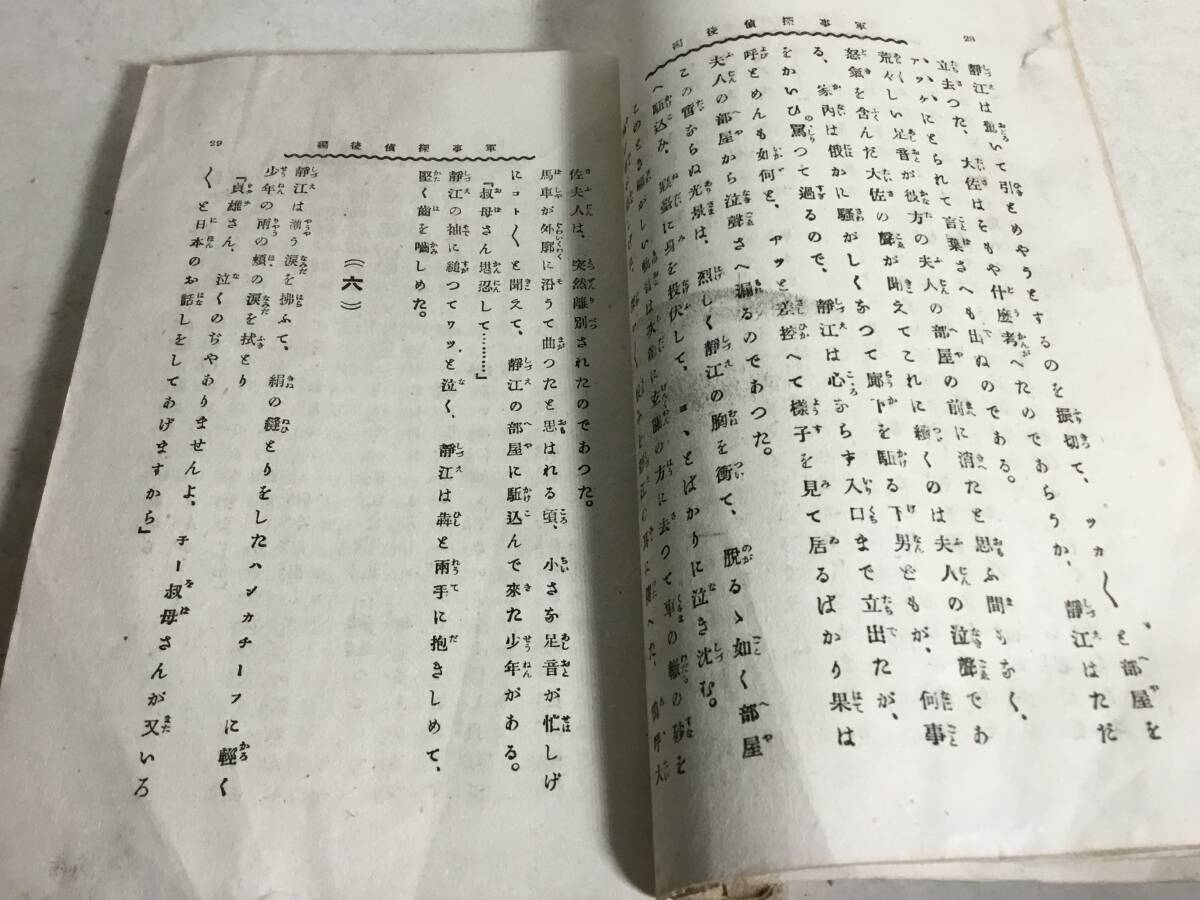 軍事探偵後編
28
靜江は驚いて引とめやうとするのを振切て、ツカ〱と部屋を
立去つた、大佐はそもや什麽考へたのであらうか、靜江はただ
アツケにとられて言葉さへも出ぬのである。
荒々しい足音が彼方の夫人の部屋の前に消たと思ふ間もなく、
怒氣を含んだ大佐の聲が聞えてこれに續くのは夫人の泣聲であ
る、家內は俄かに騷がしくなつて廊下を駈る下男どもが、何事
をかいひ罵つて過るので、靜江は心ならず入口まで立出たが、
呼とめんも如何と、アツと差控へて樣子を見て居るばかり果は
夫人の部屋から泣聲さへ漏るのであつた。
この質ならぬ光景は、烈しく靜江の胸を衝て、脱るゝ如く部屋
へ駈込み、寢臺に身を投伏して、ヨヽとばかりに泣き沈む。
軍事探偵後編
29
佐夫人は、突然離別されたのであつた。
馬車が外廓に沿うて曲つたと思はれる頃、小さな足音が忙しげ
にコト〱と聞えて、靜江の部屋に駈込んで來た少年がある。
「叔母さん堪忍して………」
靜江の袖に縋つてワツと泣く、靜江は犇と兩手に抱きしめて、
堅く齒を嚙しめた。
（六）
靜江は漸う淚を拂ふて、絹の縫とりをしたハンカチーフに輕く
少年の兩の頰の淚を拭とり
「貞雄さん、泣くのぢやありませんよ、チー叔母さんが又いろ
〱と日本のお話しをしてあげますから」